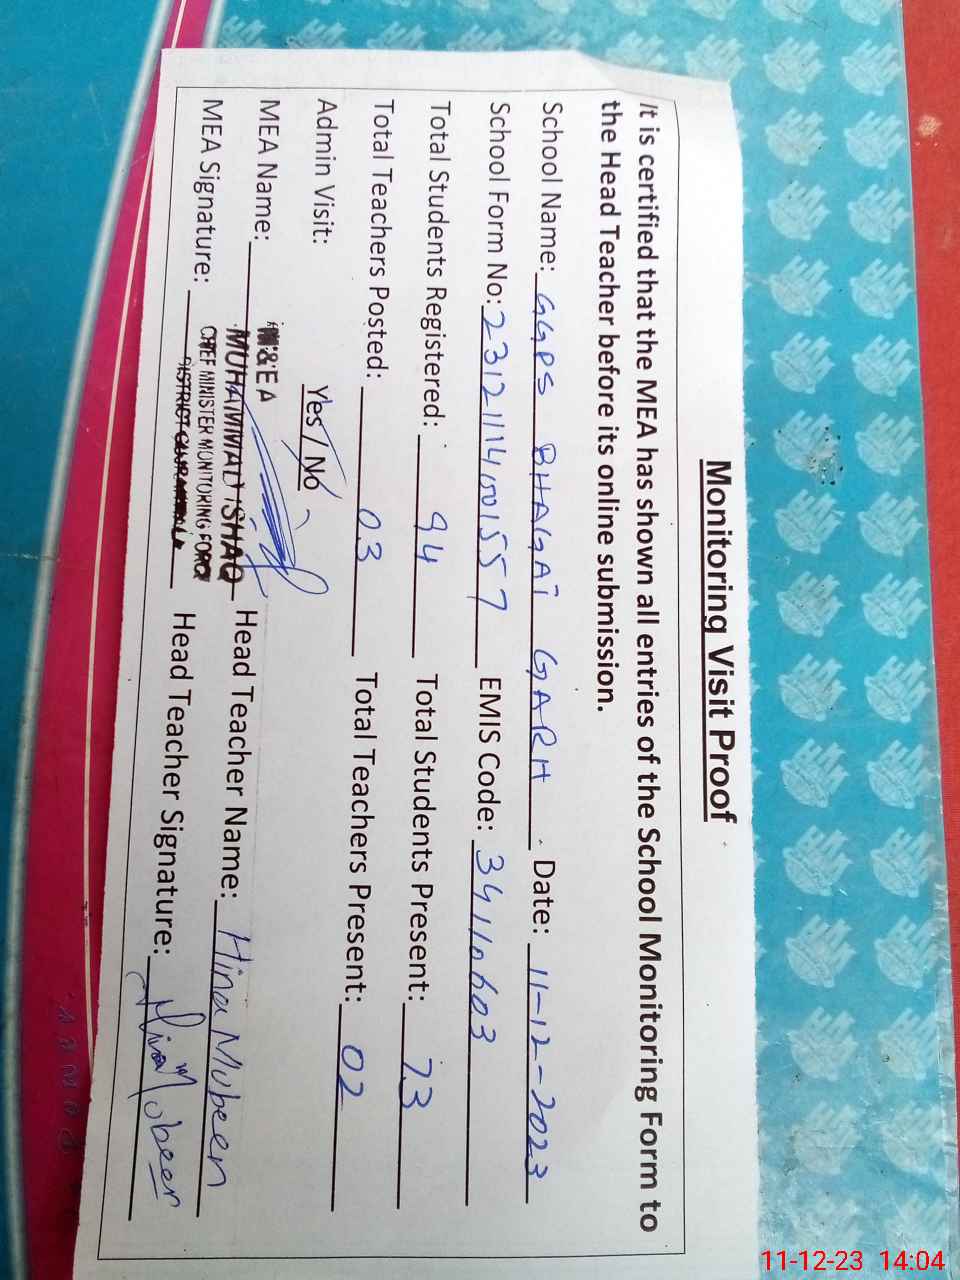 Monitoring Visit Proof
It is certified that the MEA has shown all entries of the School Monitoring Form to
the Head Teacher before its online submission.
School Name: GGPS BHAGAI GARH Date: 11-12-2023
School Form No: 23121114100157 EMIS Code: 34110603
Total Students Registered: 94 Total Students Present: 73
Total Teachers Posted: 03 Total Teachers Present: 02
Admin Visit: Yes / No
M&EA
MEA Name: MUHAMMAD ISHAQ Head Teacher Name: Hina Mubeen
CHIEF MINISTER MONITORING FORCE
MEA Signature: DISTRICT Head Teacher Signature: Hina Mobeen
11-12-23 14:04